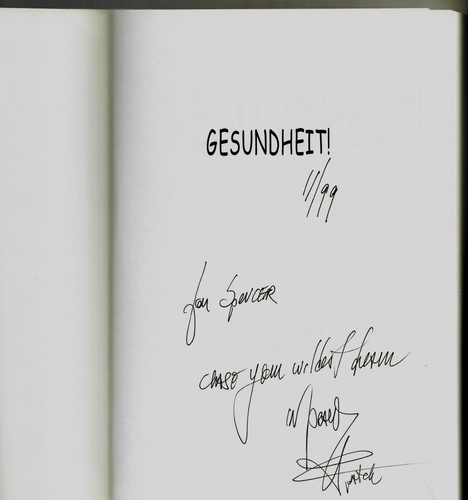 GESUNDHEIT!
11/99
for Spencer
chase your wildest dream
in peace
Patch